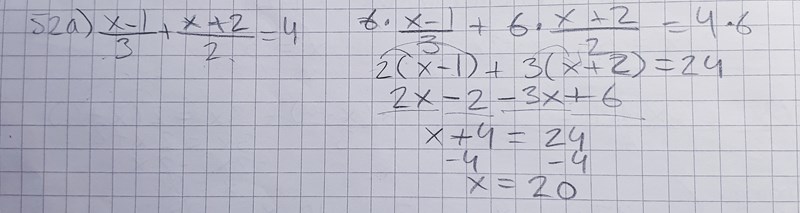 52a) (x-1)/3 + (x+2)/2 = 4
6·(x-1)/3 + 6·(x+2)/2 = 4·6
2(x-1) + 3(x+2) = 24
2x - 2 - 3x + 6
x + 4 = 24
-4 -4
x = 20